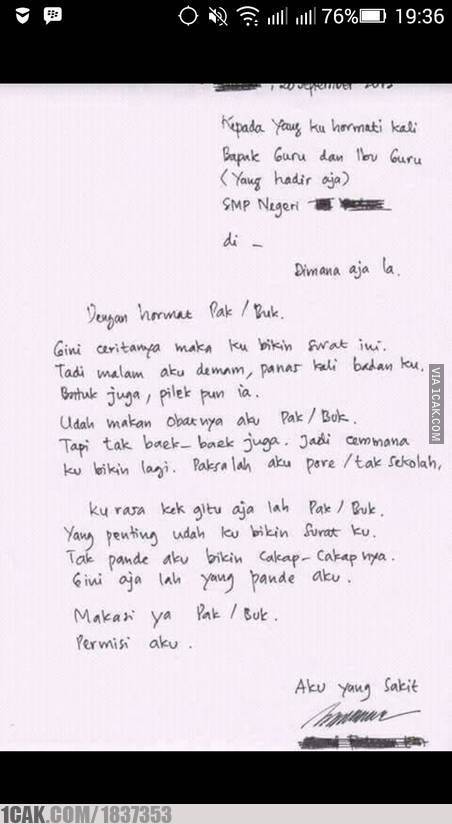 76% 19:36
, 20 September 2013
Kepada Yang ku hormati kali
Bapak Guru dan Ibu Guru
(Yang hadir aja)
SMP Negeri
di -
Dimana aja la.
Dengan hormat Pak / Buk.
Gini ceritanya maka ku bikin surat ini.
Tadi malam aku demam, panas kali badan ku.
Batuk juga, pilek pun ia.
Udah makan obatnya aku Pak / Buk.
Tapi tak baek-baek juga. Jadi cemmana
ku bikin lagi. Paksa lah aku pore / tak sekolah,
Ku rasa kek gitu aja lah Pak / Buk.
Yang penting udah ku bikin surat ku.
Tak pande aku bikin cakap-cakapnya.
Gini aja lah yang pande aku.
Makasi ya Pak / Buk.
Permisi aku.
Aku yang Sakit
VIA 1CAK.COM
1CAK.COM/1837353